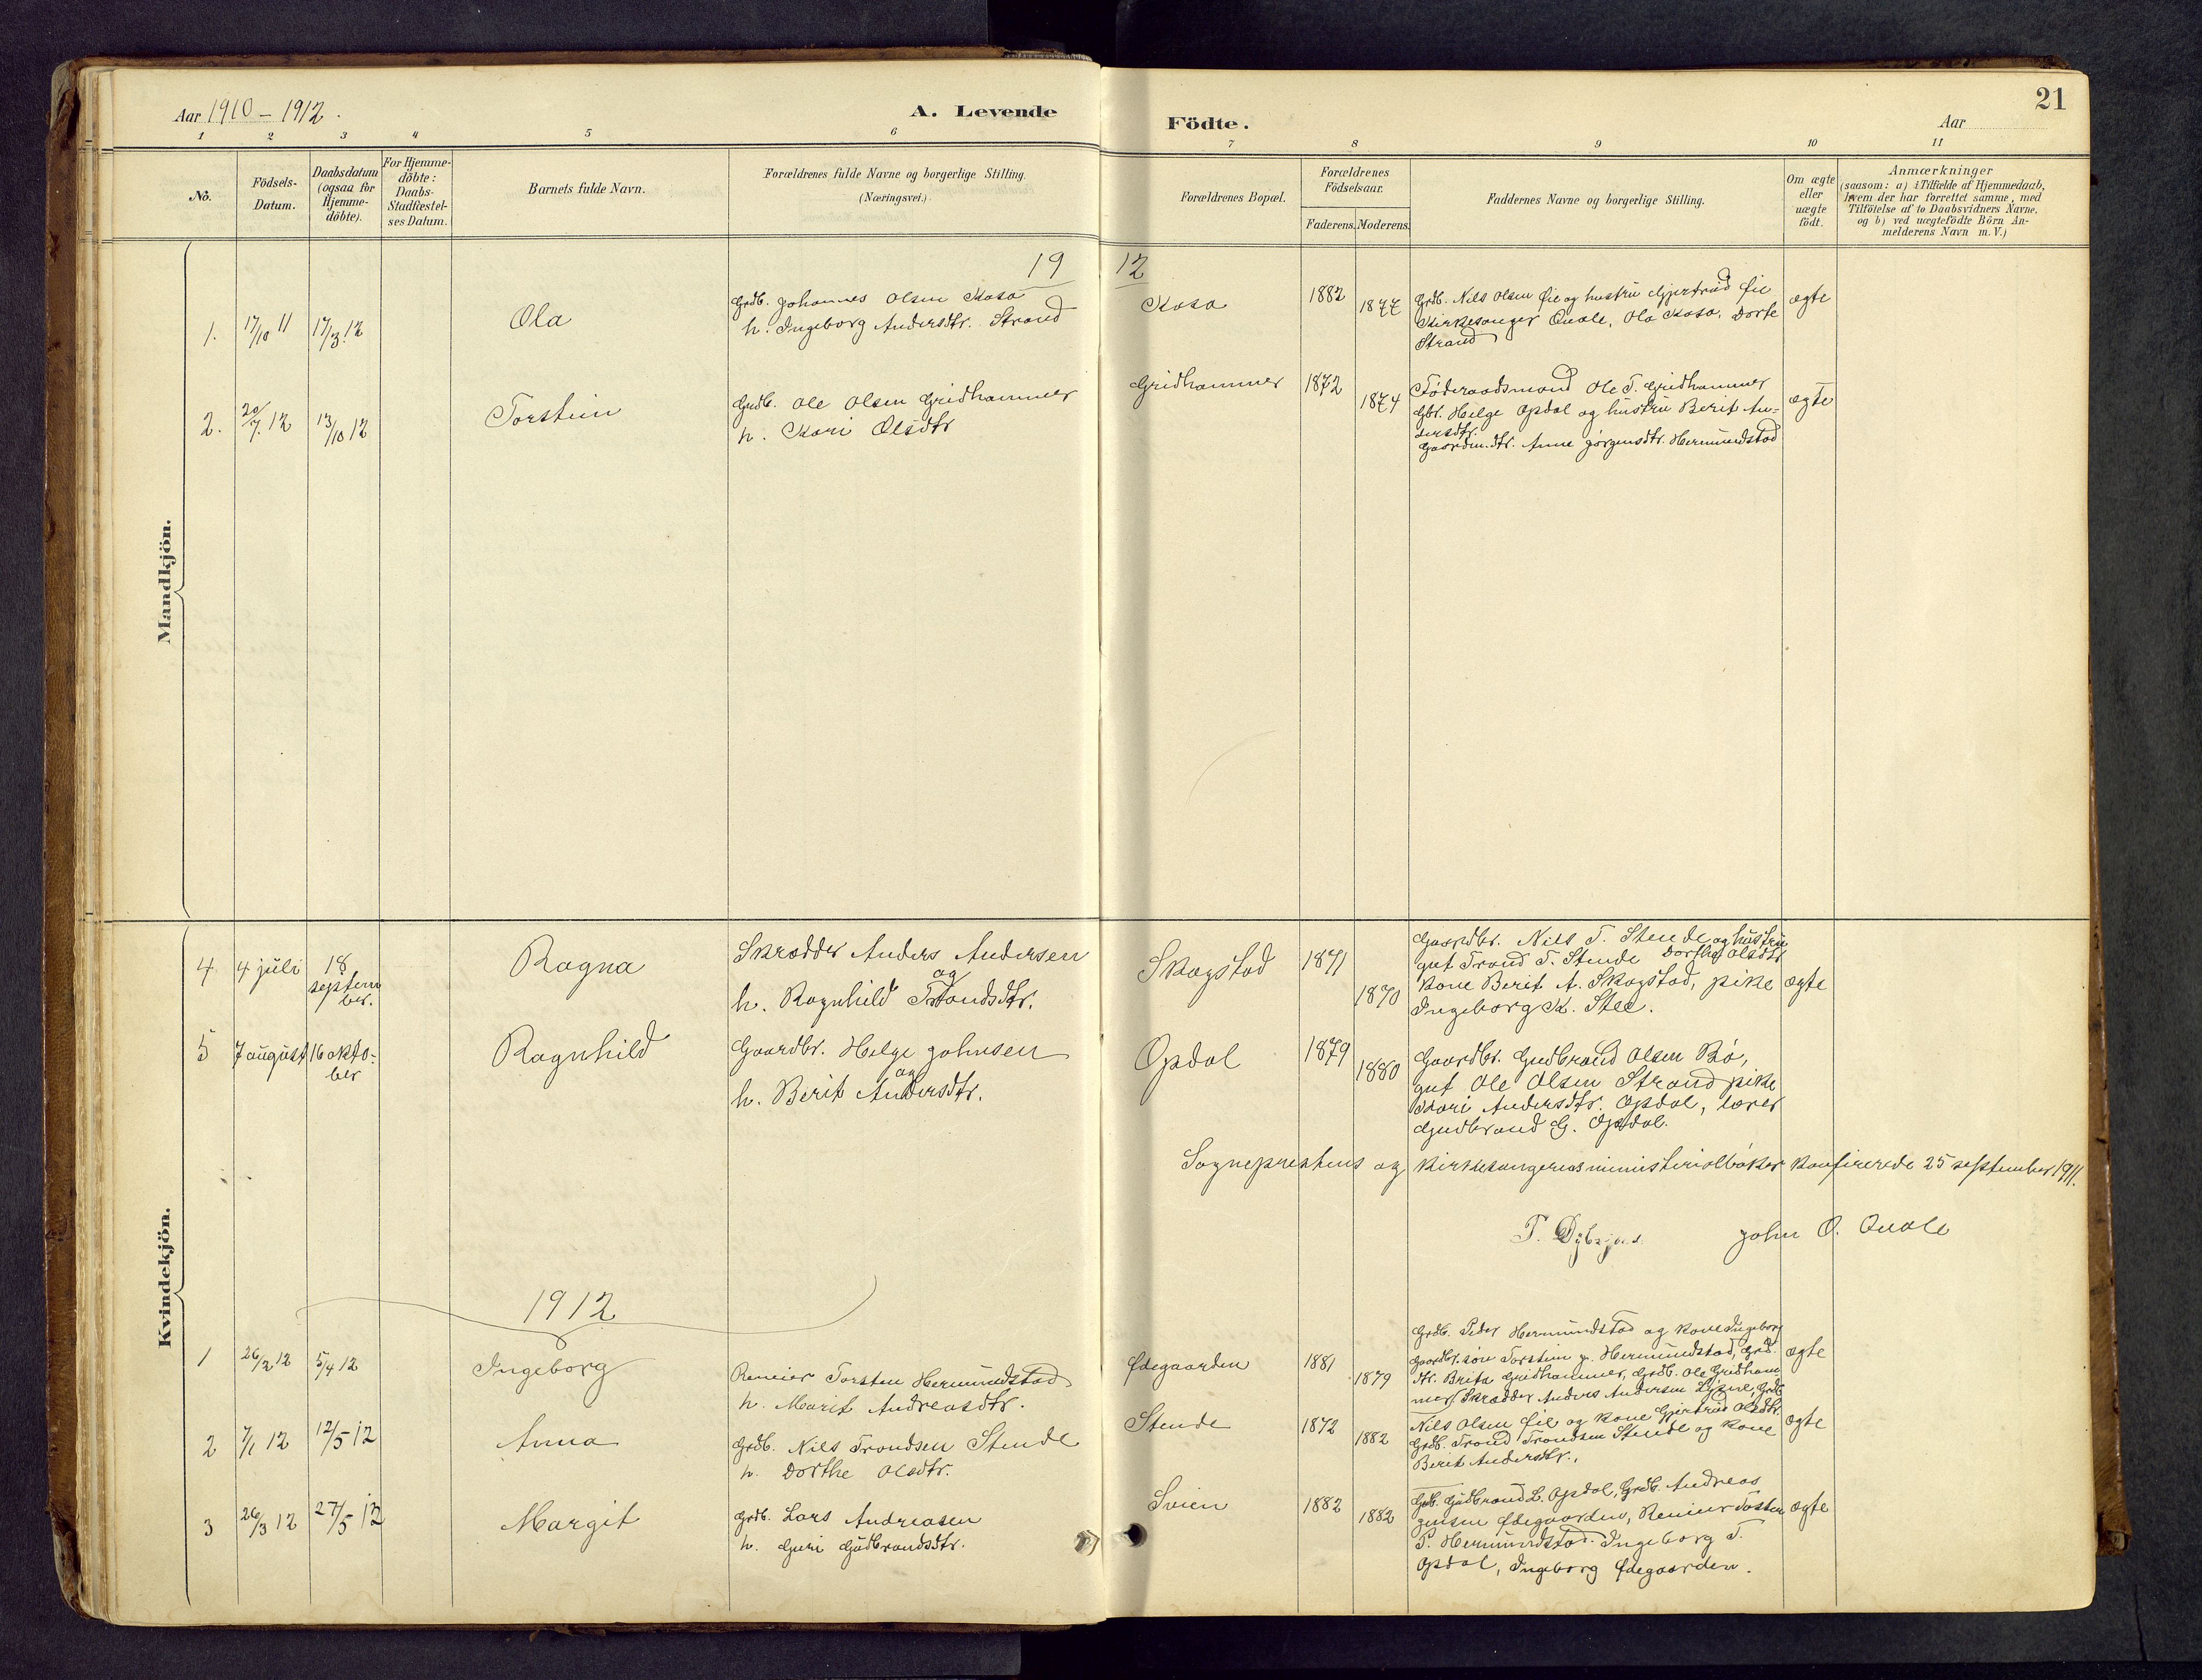 21
Aar 1910 – 1912.
A. Levende
Födte.
Aar
1 2 3 4 5 6 7 8 9 10 11
No.
Födsels-
Datum.
Daabsdatum
(ogsaa for
Hjemme-
döbte).
For Hjemme-
döbte:
Daabs-
Stadfæstel-
ses Datum.
Barnets fulde Navn.
Forældrenes fulde Navne og borgerlige Stilling.
(Næringsvei.)
Forældrenes Bopæl.
Forældrenes
Födselsaar.
Faderens.
Moderens.
Faddernes Navne og borgerlige Stilling.
Om ægte
eller
uægte
födt.
Anmærkninger
(saasom: a) i Tilfælde af Hjemmedaab,
hvem der har forrettet samme, med
Tilföielse af to Daabsvidners Navne,
og b) ved uægtefödte Börn An-
melderens Navn m. V.)
Mandkjön.
19 12
1.
17/10 11
17/3. 12
Ola
Grdb. Johannes Olsen Kasa
h. Ingeborg Andersdtr. Strand
Kasa
1882
1877
Grdb. Nils Olsen Øie og hustru Gjertrud Øie
Kirkesanger Quale, Ola Kasa, Dorte
Strand
ægte
2.
20/7. 12
13/10 12
Torstein
Grdb. Ole Olsen Gridhammer
h. Kari Olsdtr
Gridhammer
1872
1874
Føderaadsmand Ole T. Gridhammer
Gbr. Helge Opdal og hustru Berit An-
dersdtr.
Gaardm.dtr. Anne Jørgensdtr. Hermundstad
ægte
Kvindekjön.
4
4 juli
18
septem
ber.
Ragna
Skrædder Anders Andersen
og
h. Ragnhild Trondsdtr.
Skogstad
1871
1870
Gaardbr. Nils T. Stende og hustru
gut Trond T. Stende Dorthe Olsdtr
kone Berit A. Skogstad, pike
Ingeborg K. Stee.
ægte
5
7 august
16 okto-
ber
Ragnhild
Gaardbr. Helge Johnsen
og
h. Berit Andersdtr.
Opdal
1879
1880
Gaardbr. Gudbrand Olsen Bø,
gut Ole Olsen Strand pike
Kari Andersdtr. Opdal, lærer
Gudbrand G. Opdal.
Sogneprestens og kirkesangerens ministerialbøker konfererede 25 september 1911.
T. John O. Quale
1912
1
26/2 12
5/4 12
Ingeborg
Torsten Hermundstad
h. Marit Andreasdtr.
Ødegaarden
1881
1879
Grdb. Peder Hermundstad og kone Ingeborg
gaardbr.søn Torstein p. Hermundstad, grd.
dtr. Brita Gridhammer, Grdb. Ole Gridham-
mer, Skrædder Anders Andersen
ægte
2
7/1 12
12/5 12
Anna
Grdb. Nils Trondsen Stende
h. Dorthe Olsdtr.
Stende
1872
1882
Grdb. Nils Olsen Øie og kone Gjertrud Olsdtr.
Grdb. Trond Trondsen Stende og kone
Berit Andersdtr.
ægte
3
26/3 12
27/5 12
Margit
Grdb. Lars Andreasen
h. Guri Gudbrandsdtr.
Svien
1882
1882
Grdb. Gudbrand L. Opdal, Grdb. Andreas
Ødegaarden, Tosten
P. Hermundstad. Ingeborg T.
Opdal, Ingeborg Ødegaarden.
ægte